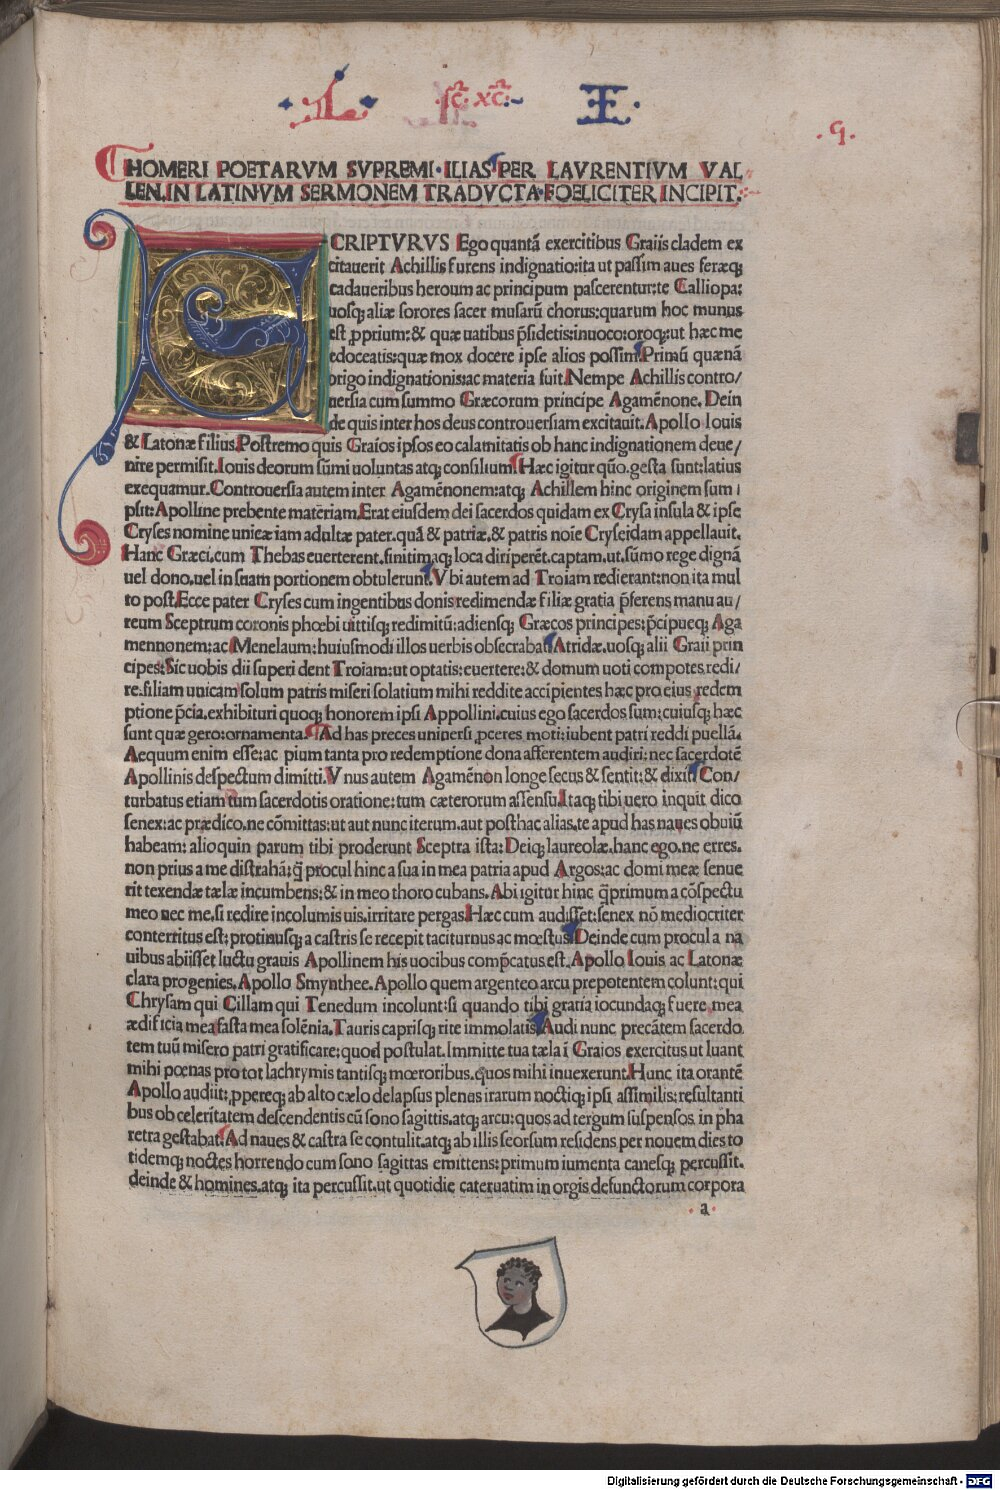 L · sc̃· xc̃:~ · E ·
· 9 ·
HOMERI POETARVM SVPREMI · ILIAS PER LAVRENTIVM VAL
LEN. IN LATINVM SERMONEM TRADVCTA · FOELICITER INCIPIT.
SCRIPTVRVS Ego quantã exercitibus Graiis cladem ex
citauerit Achillis furens indignatio:ita ut passim aues feræq;
cadaueribus heroum ac principum pascerentur:te Calliopa:
uosq; aliæ sorores sacer musarũ chorus:quarum hoc munus
est ꝓprium:& quæ uatibus p̃sidetis:inuoco:oroq;:ut hæc me
edoceatis:quæ mox docere ipse alios possim. Primũ quænã
origo indignationis:ac materia fuit. Nempe Achillis contro/
uersia cum summo Græcorum principe Agamẽnone. Dein
de quis inter hos deus controuersiam excitauit. Apollo Iouis
& Latonæ filius. Postremo quis Graios ipsos eo calamitatis ob hanc indignationem deue/
nire permisit. Iouis deorum sũmi uoluntas atq; consilium. Hæc igitur quo. gesta sunt:latius
exequamur. Controuersia autem inter Agamẽnonem:atq; Achillem hinc originem sum /
psit: Apolline prebente materiam. Erat eiusdem dei sacerdos quidam ex Crysa insula & ipse
Cryses nomine unicæ iam adultæ pater. quã & patriæ. & patris noĩe Cryseidam appellauit.
Hanc Græci. cum Thebas euerterent. finitimaq; loca diriperẽt. captam. ut. sũmo rege dignã
uel dono. uel in suam portionem obtulerunt. Vbi autem ad Troiam redierant:non ita mul
to post. Ecce pater Cryses cum ingentibus donis redimendæ filiæ gratia p̃ferens manu au/
reum Sceptrum coronis phœbi uittisq; redimitũ:adiensq; Græcos principes:p̃cipueq; Aga
mennonem:ac Menelaum:huiusmodi illos uerbis obsecrabat. Atridæ. uosq; alii Graii prin
cipes: Sic uobis dii superi dent Troiam:ut optatis:euertere:& domum uoti compotes redi/
re. filiam unicam solum patris miseri solatium mihi reddite accipientes hæc pro eius redem
ptione p̃cia. exhibituri quoq; honorem ipsi Appollini. cuius ego sacerdos sum:cuiusq; hæc
sunt quæ gero:ornamenta. Ad has preces uniuersi ꝓceres moti:iubent patri reddi puellã.
Aequum enim esse:ac pium tanta pro redemptione dona afferentem audiri:nec sacerdotẽ
Apollinis despectum dimitti. Vnus autem Agamẽnon longe secus & sentit:& dixit. Con/
turbatus etiam tum sacerdotis oratione:tum cæterorum assensu. Itaq; tibi uero inquit dico
senex:ac prædico. ne cõmittas:ut aut nunc iterum. aut posthac alias. te apud has naues obuiũ
habeam: alioquin parum tibi proderunt Sceptra ista: Deiq; laureolæ. hanc ego. ne erres.
non prius a me distrahã:q̃ procul hinc a sua in mea patria apud Argos:ac domi meæ senue
rit texendæ tælæ incumbens:& in meo thoro cubans. Abi igitur hinc q̃primum a cõspectu
meo nec me. si redire incolumis uis. irritare pergas. Hæc cum audisset:senex nõ mediocriter
conterritus est:protinusq; a castris se recepit taciturnus ac mœstus. Deinde cum procul a na
uibus abiisset luctu grauis Apollinem his uocibus comp̃catus est. Apollo Iouis ac Latonæ
clara progenies. Apollo Smynthee. Apollo quem argenteo arcu prepotentem colunt:qui
Chrysam qui Cillam qui Tenedum incolunt:si quando tibi gratia iocundaq; fuere mea
ædificia mea fasta mea solẽnia. Tauris caprisq; rite immolatis. Audi nunc precãtem sacerdo
tem tuũ misero patri gratificare:quod postulat. Immitte tua tæla ĩ Graios exercitus ut luant
mihi pœnas pro tot lachrymis tantisq; mœroribus. quos mihi inuexerunt. Hunc ita orantẽ
Apollo audiit:ꝓpereq; ab alto cælo delapsus plenus irarum noctiq; ipsi assimilis:resultanti
bus ob celeritatem descendentis cũ sono sagittis. atq; arcu:quos ad tergum suspensos in pha
retra gestabat. Ad naues & castra se contulit. atq; ab illis seorsum residens per nouem dies to
tidemq; noctes horrendo cum sono sagittas emittens:primum iumenta canesq; percussit.
deinde & homines. atq; ita percussit. ut quotidie cateruatim in orgis defunctorum corpora
a
Digitalisierung gefördert durch die Deutsche Forschungsgemeinschaft - DFG